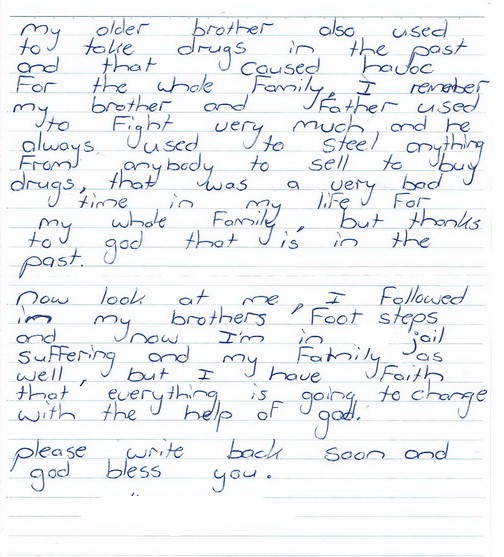 my older brother also used
to take drugs in the past
and that caused havoc
For the whole Family, I remeber
my brother and Father used
to Fight very much and he
always used to steel anything
From anybody to sell to buy
drugs, that was a very bad
time in my life For
my whole Family, but thanks
to god that is in the
past.
now look at me, I Followed
in my brothers Foot steps
and now I'm in jail
suffering and my Family as
well, but I have Faith
that everything is going to change
with the help of god.
please write back soon and
god bless you.